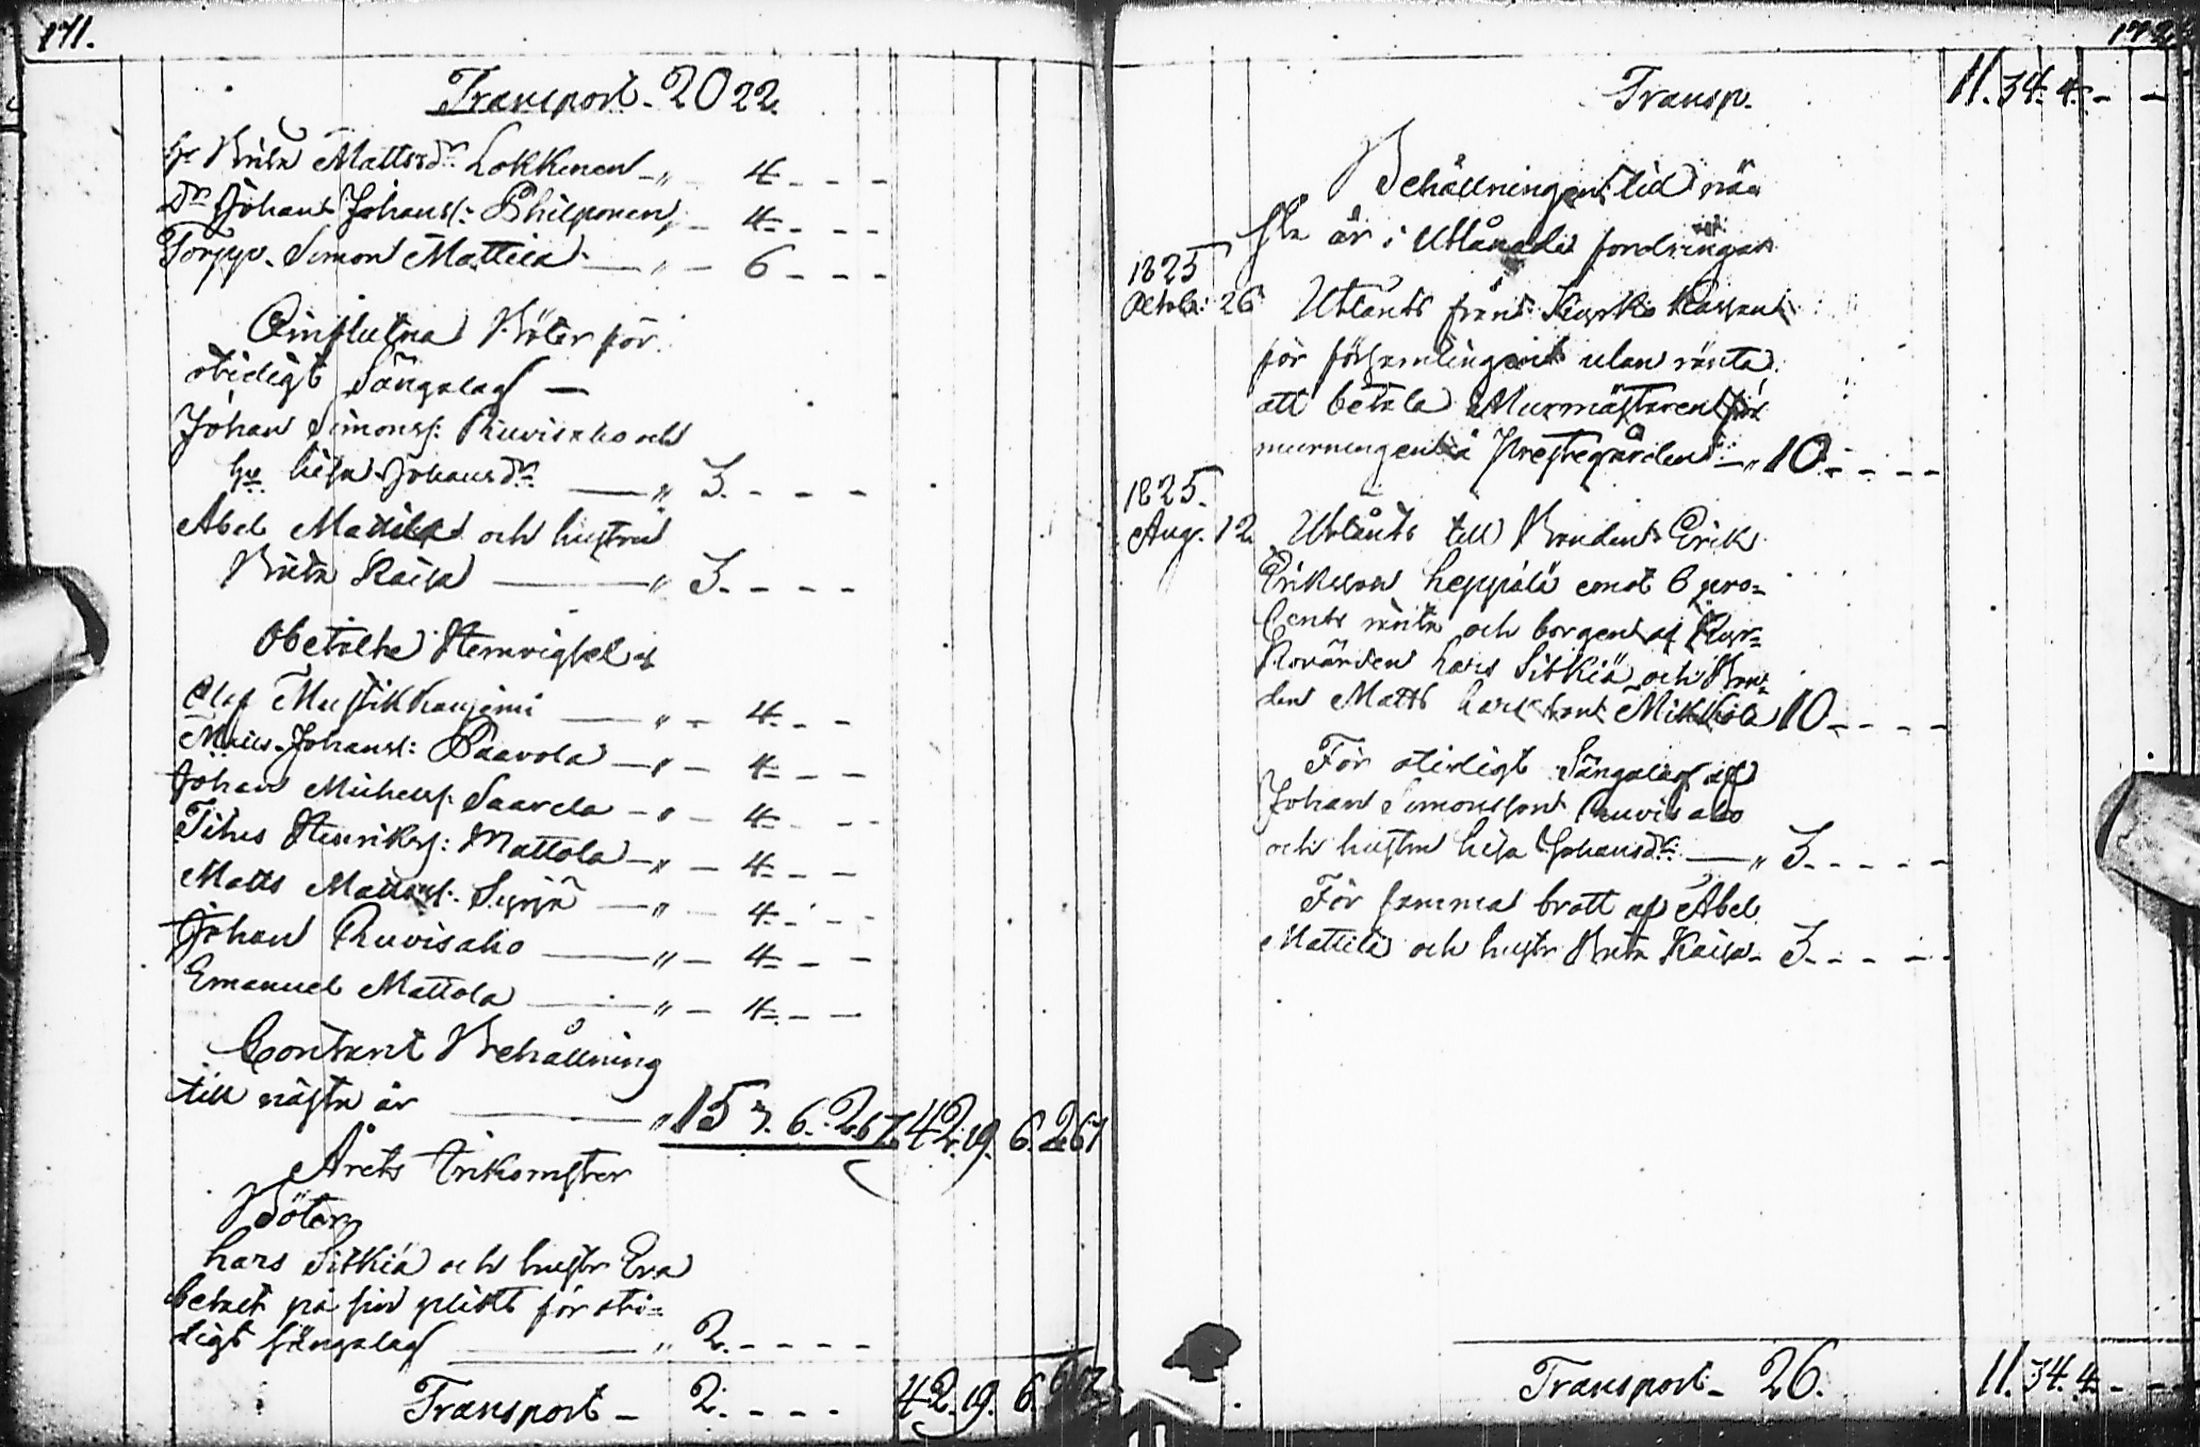 171.
Transport - 20 22.
H: Brita Mattsdr Lokkinen - " - 4 - - -
Dr Johan Johanss: Philponen " - 4 - - -
Torpp. Simon Mattila — " - 6 - - -
Oinflutna Böter för
otidigt Sängalag —
Johan Simonss: Ruvisaho och
hu Lisa Johansdr — " 3. - - -
Abel Mattila och hustru
Brita Kaisa — " 3. - - -
Obetalte Hemvigsel af
Olof Mustikkanjemi — " - 4 - -
Nils Johanss: Paavola — " - 4 - -
Johan Michelss: Saarela - " - 4 - - -
Titus Henrikss: Mattola — " - 4 - -
Matts Mattss: Syrjä — " - 4 - - -
Johan Ruvisaho — " - 4 - -
Emanuel Mattola — " - 4 - -
Contant Behållning
till nästa år — " 15 7. 6. 267 42. 19. 6. 267
Årets Inkomster
Böter
Lars Sitkiä och hustr Eva
betalt på sin plikt för oti=
digt sängalag — " 2. - - - -
Transport - 2. - - - 42. 19. 6.
172
Transp. 11. 34. 4. - -
Behållningen til näs
sta år i Utlånade fordringar
1825
Octob: 26 Utlånts från Kyrko Kassan
för församlingens utan ränta
att betala Murmästaren för
murningen å Prestegården — " 10 - - - -
1825.
Aug. 12 Utlånts till Bonden Erik
Eriksson Leppälä emot 6 pro=
Cents ränta och borgen af Kyr=
kovärden Lars Sitkiä och Bon=
den Matts Larsson Mikkola 10 - - - -
För otidigt Sängalag af
Johan Simonsson Ruvisaho
och hustru Lisa Johansdr — " 3. - - - -
För samma brott af Abel
Mattila och hustr Brita Kaisa - 3. - - - -
Transport - 26. 11. 34. 4 - -